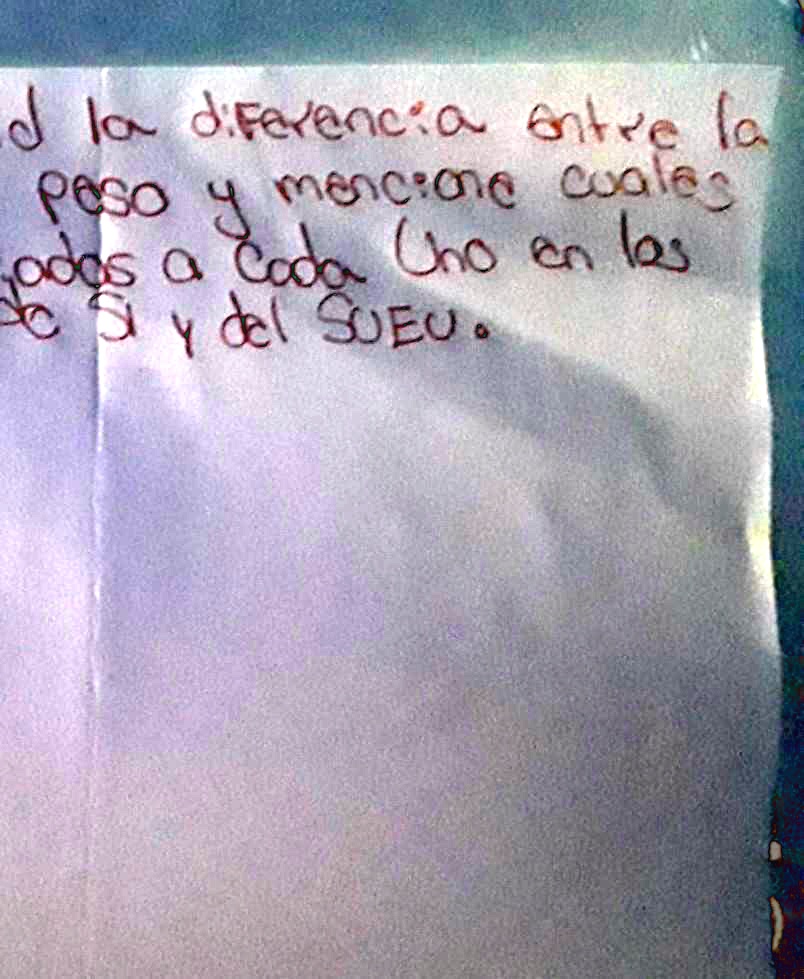 d la diferencia entre la
peso y mencione cuales
ados a Cada Uno en los
de SI y del SUEU.